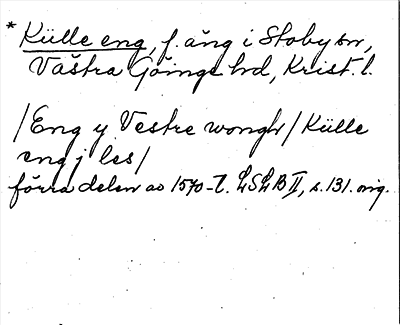 * Külle eng, f. äng i Stoby sn,
Västra Göinge hd, Krist. l.
/Eng y Vestre wongh/ Külle
eng j les/
förra delen av 1570-t. LSLB II, s. 131. orig.